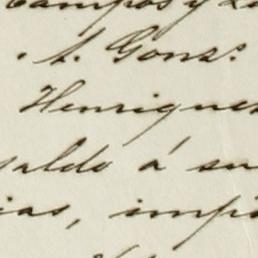 Campos y
. A. Gonz.
Henriques
saldo á su
ias, imp